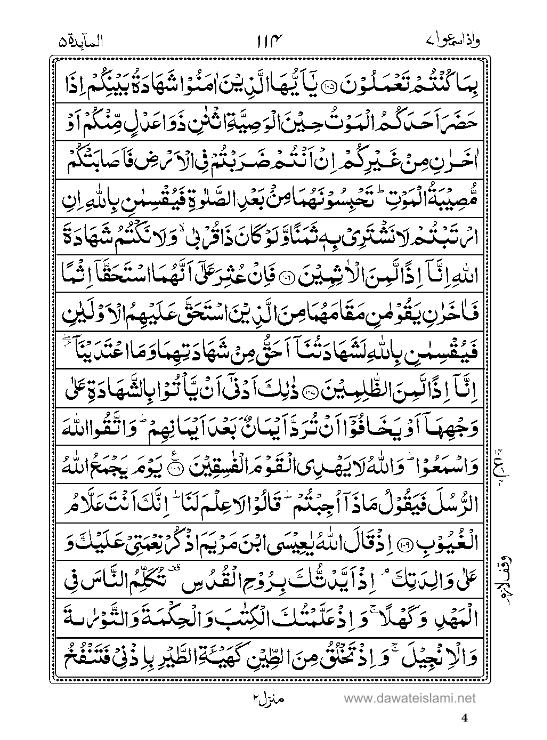 واذاسمعوا ٧
١١٤
المآىِٕدة ٥
بِمَا كُنْتُمْ تَعْمَلُوْنَ ﴿۱۰۵﴾ یٰۤاَیُّهَا الَّذِیْنَ اٰمَنُوْا شَهَادَةُ بَیْنِكُمْ اِذَا
حَضَرَ اَحَدَكُمُ الْمَوْتُ حِیْنَ الْوَصِیَّةِ اثْنٰنِ ذَوَا عَدْلٍ مِّنْكُمْ اَوْ
اٰخَرٰنِ مِنْ غَیْرِكُمْ اِنْ اَنْتُمْ ضَرَبْتُمْ فِی الْاَرْضِ فَاَصَابَتْكُمْ
مُّصِیْبَةُ الْمَوْتِؕ تَحْبِسُوْنَهُمَا مِنْۢ بَعْدِ الصَّلٰوةِ فَیُقْسِمٰنِ بِاللّٰهِ اِنِ
ارْتَبْتُمْ لَا نَشْتَرِیْ بِهٖ ثَمَنًا وَّلَوْ كَانَ ذَا قُرْبٰىۙ وَلَا نَكْتُمُ شَهَادَةَ
اللّٰهِ اِنَّاۤ اِذًا لَّمِنَ الْاٰثِمِیْنَ ﴿۱۰۶﴾ فَاِنْ عُثِرَ عَلٰۤى اَنَّهُمَا اسْتَحَقَّاۤ اِثْمًا
فَاٰخَرٰنِ یَقُوْمٰنِ مَقَامَهُمَا مِنَ الَّذِیْنَ اسْتَحَقَّ عَلَیْهِمُ الْاَوْلَیٰنِ
فَیُقْسِمٰنِ بِاللّٰهِ لَشَهَادَتُنَاۤ اَحَقُّ مِنْ شَهَادَتِهِمَا وَمَا اعْتَدَیْنَاۤ ۖ
اِنَّاۤ اِذًا لَّمِنَ الظّٰلِمِیْنَ ﴿۱۰۷﴾ ذٰلِكَ اَدْنٰۤى اَنْ یَّاْتُوْا بِالشَّهَادَةِ عَلٰى
وَجْهِهَاۤ اَوْ یَخَافُوْۤا اَنْ تُرَدَّ اَیْمَانٌۢ بَعْدَ اَیْمَانِهِمْؕ وَاتَّقُوا اللّٰهَ
وَاسْمَعُوْاؕ وَاللّٰهُ لَا یَهْدِی الْقَوْمَ الْفٰسِقِیْنَ ﴿۱۰۸﴾ یَوْمَ یَجْمَعُ اللّٰهُ
الرُّسُلَ فَیَقُوْلُ مَاذَاۤ اُجِبْتُمْؕ قَالُوْا لَا عِلْمَ لَنَاؕ اِنَّكَ اَنْتَ عَلَّامُ
الْغُیُوْبِ ﴿۱۰۹﴾ اِذْ قَالَ اللّٰهُ یٰعِیْسَى ابْنَ مَرْیَمَ اذْكُرْ نِعْمَتِیْ عَلَیْكَ وَ
عَلٰى وَالِدَتِكَۘ اِذْ اَیَّدْتُّكَ بِرُوْحِ الْقُدُسِ تُكَلِّمُ النَّاسَ فِی
الْمَهْدِ وَكَهْلًاۚ وَ اِذْ عَلَّمْتُكَ الْكِتٰبَ وَالْحِكْمَةَ وَالتَّوْرٰىةَ
وَالْاِنْجِیْلَۚ وَ اِذْ تَخْلُقُ مِنَ الطِّیْنِ كَهَیْـَٔةِ الطَّیْرِ بِاِذْنِیْ فَتَنْفُخُ
وقف لازم
منزل ٢
www.dawateislami.net
4